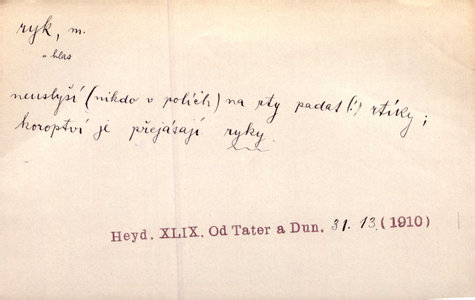 ryk, m.
„ hlas
neuslyší (nikdo v polích) na rty padat(!) rtíky;
koroptví je přejásají ryky.
Heyd. XLIX. Od Tater a Dun. 31. 13. (1910)